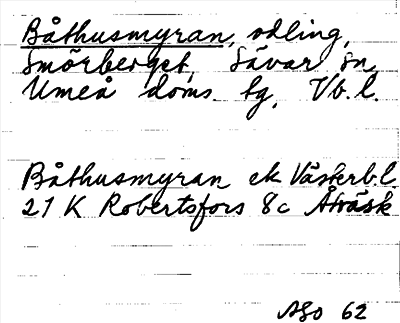 Båthusmyran, odling,
Smörberget, Sävar sn,
Umeå doms. tg, Vb.l.
Båthusmyran ek Västerb.l.
21 K Robertsfors 8c Åträsk
ASo 62